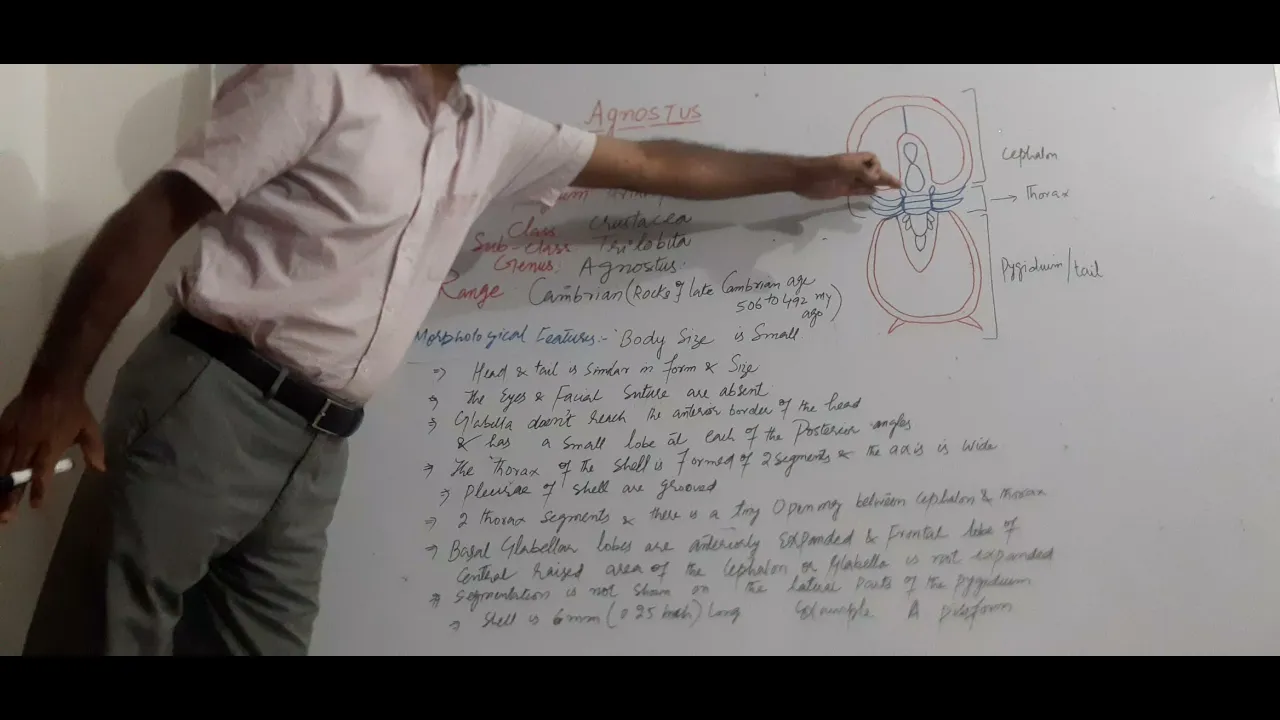 Agnostus
Class Crustacea
Sub-Class Trilobita
Genus: Agnostus.
Range Cambrian (Rocks of late Cambrian age
506 to 492 my
ago)
Morphological Features:- Body Size is Small
=> Head & tail is similar in form & Size
=> The Eyes & Facial Suture are absent
=> Glabella doesn't reach the anterior border of the head
& has a Small lobe at each of the Posterior angles
=> The Thorax of the Shell is Formed of 2 Segments & the axis is wide
=> Pleurae of Shell are grooved
=> 2 Thorax Segments & there is a tiny Opening between Cephalon & Thorax
=> Basal Glabellar lobes are anteriorly Expanded & Frontal lobe of
Central raised area of the Cephalon or Glabella is not expanded
=> Segmentation is not shown on the lateral parts of the Pygidium
=> Shell is 6mm (0.25 inch) Long A pisiform
Cephalon
Thorax
Pygidium/tail